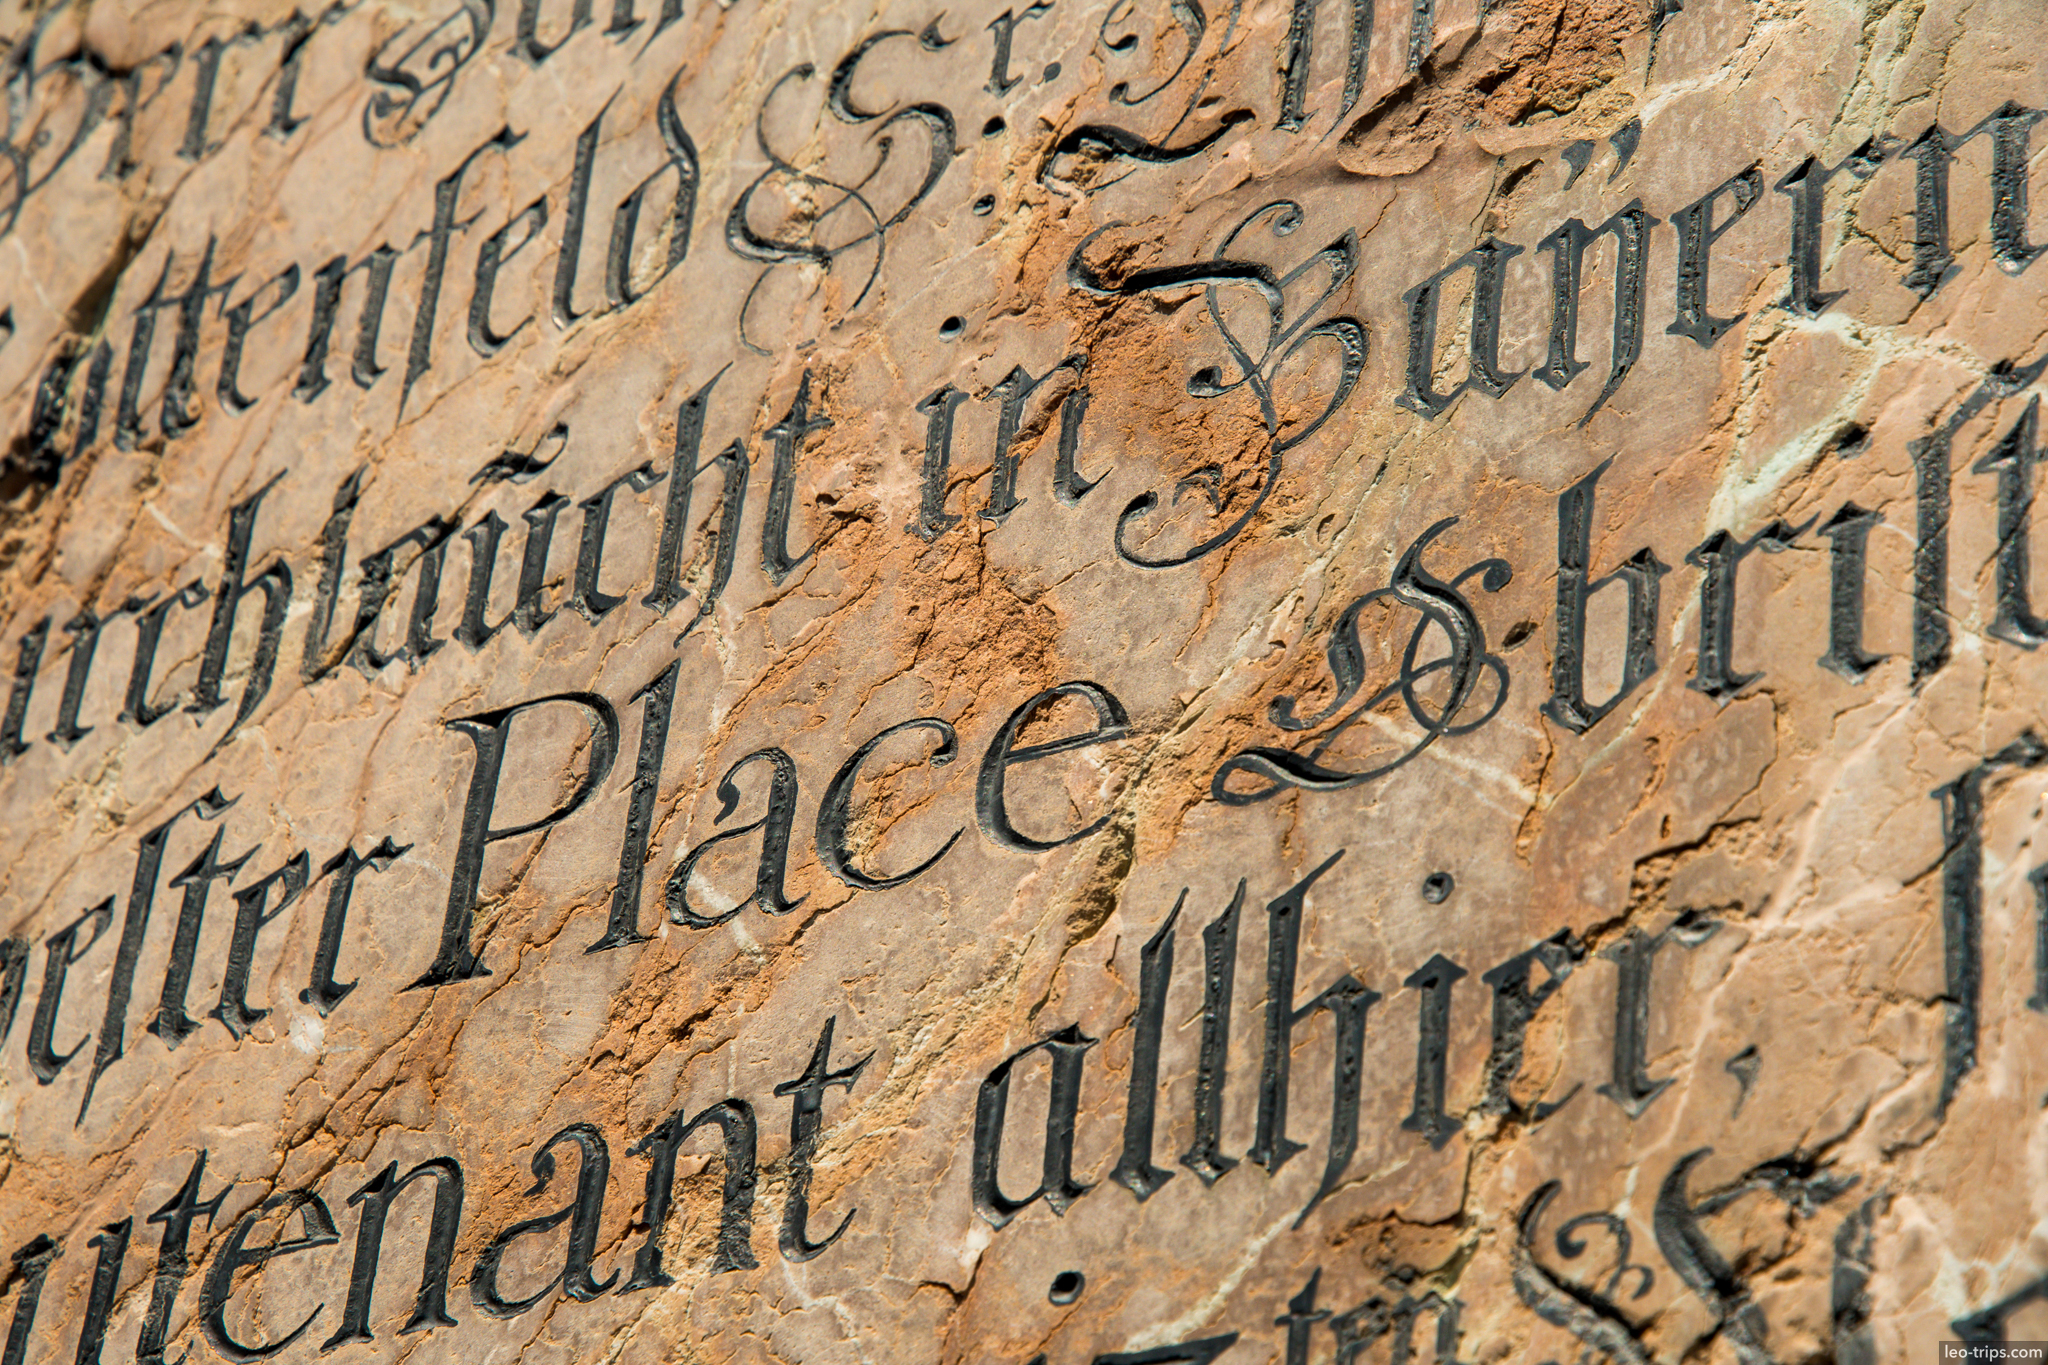 Herr
attenfeld Sr.
urchlaücht in Baÿern
veſter Place Obriſt
utenant allhier,
ten
leo-trips.com